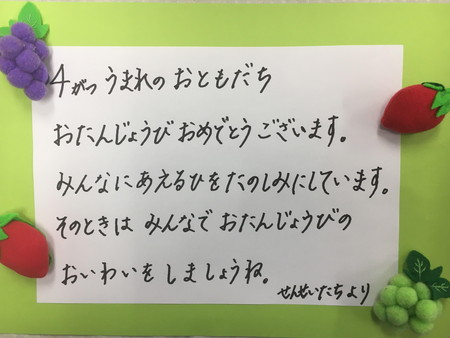 4がつ うまれの おともだち
おたんじょうび おめでとう ございます。
みんなに あえるひを たのしみにしています。
そのときは みんなで おたんじょうびの
おいわいを しましょうね。
せんせいたちより